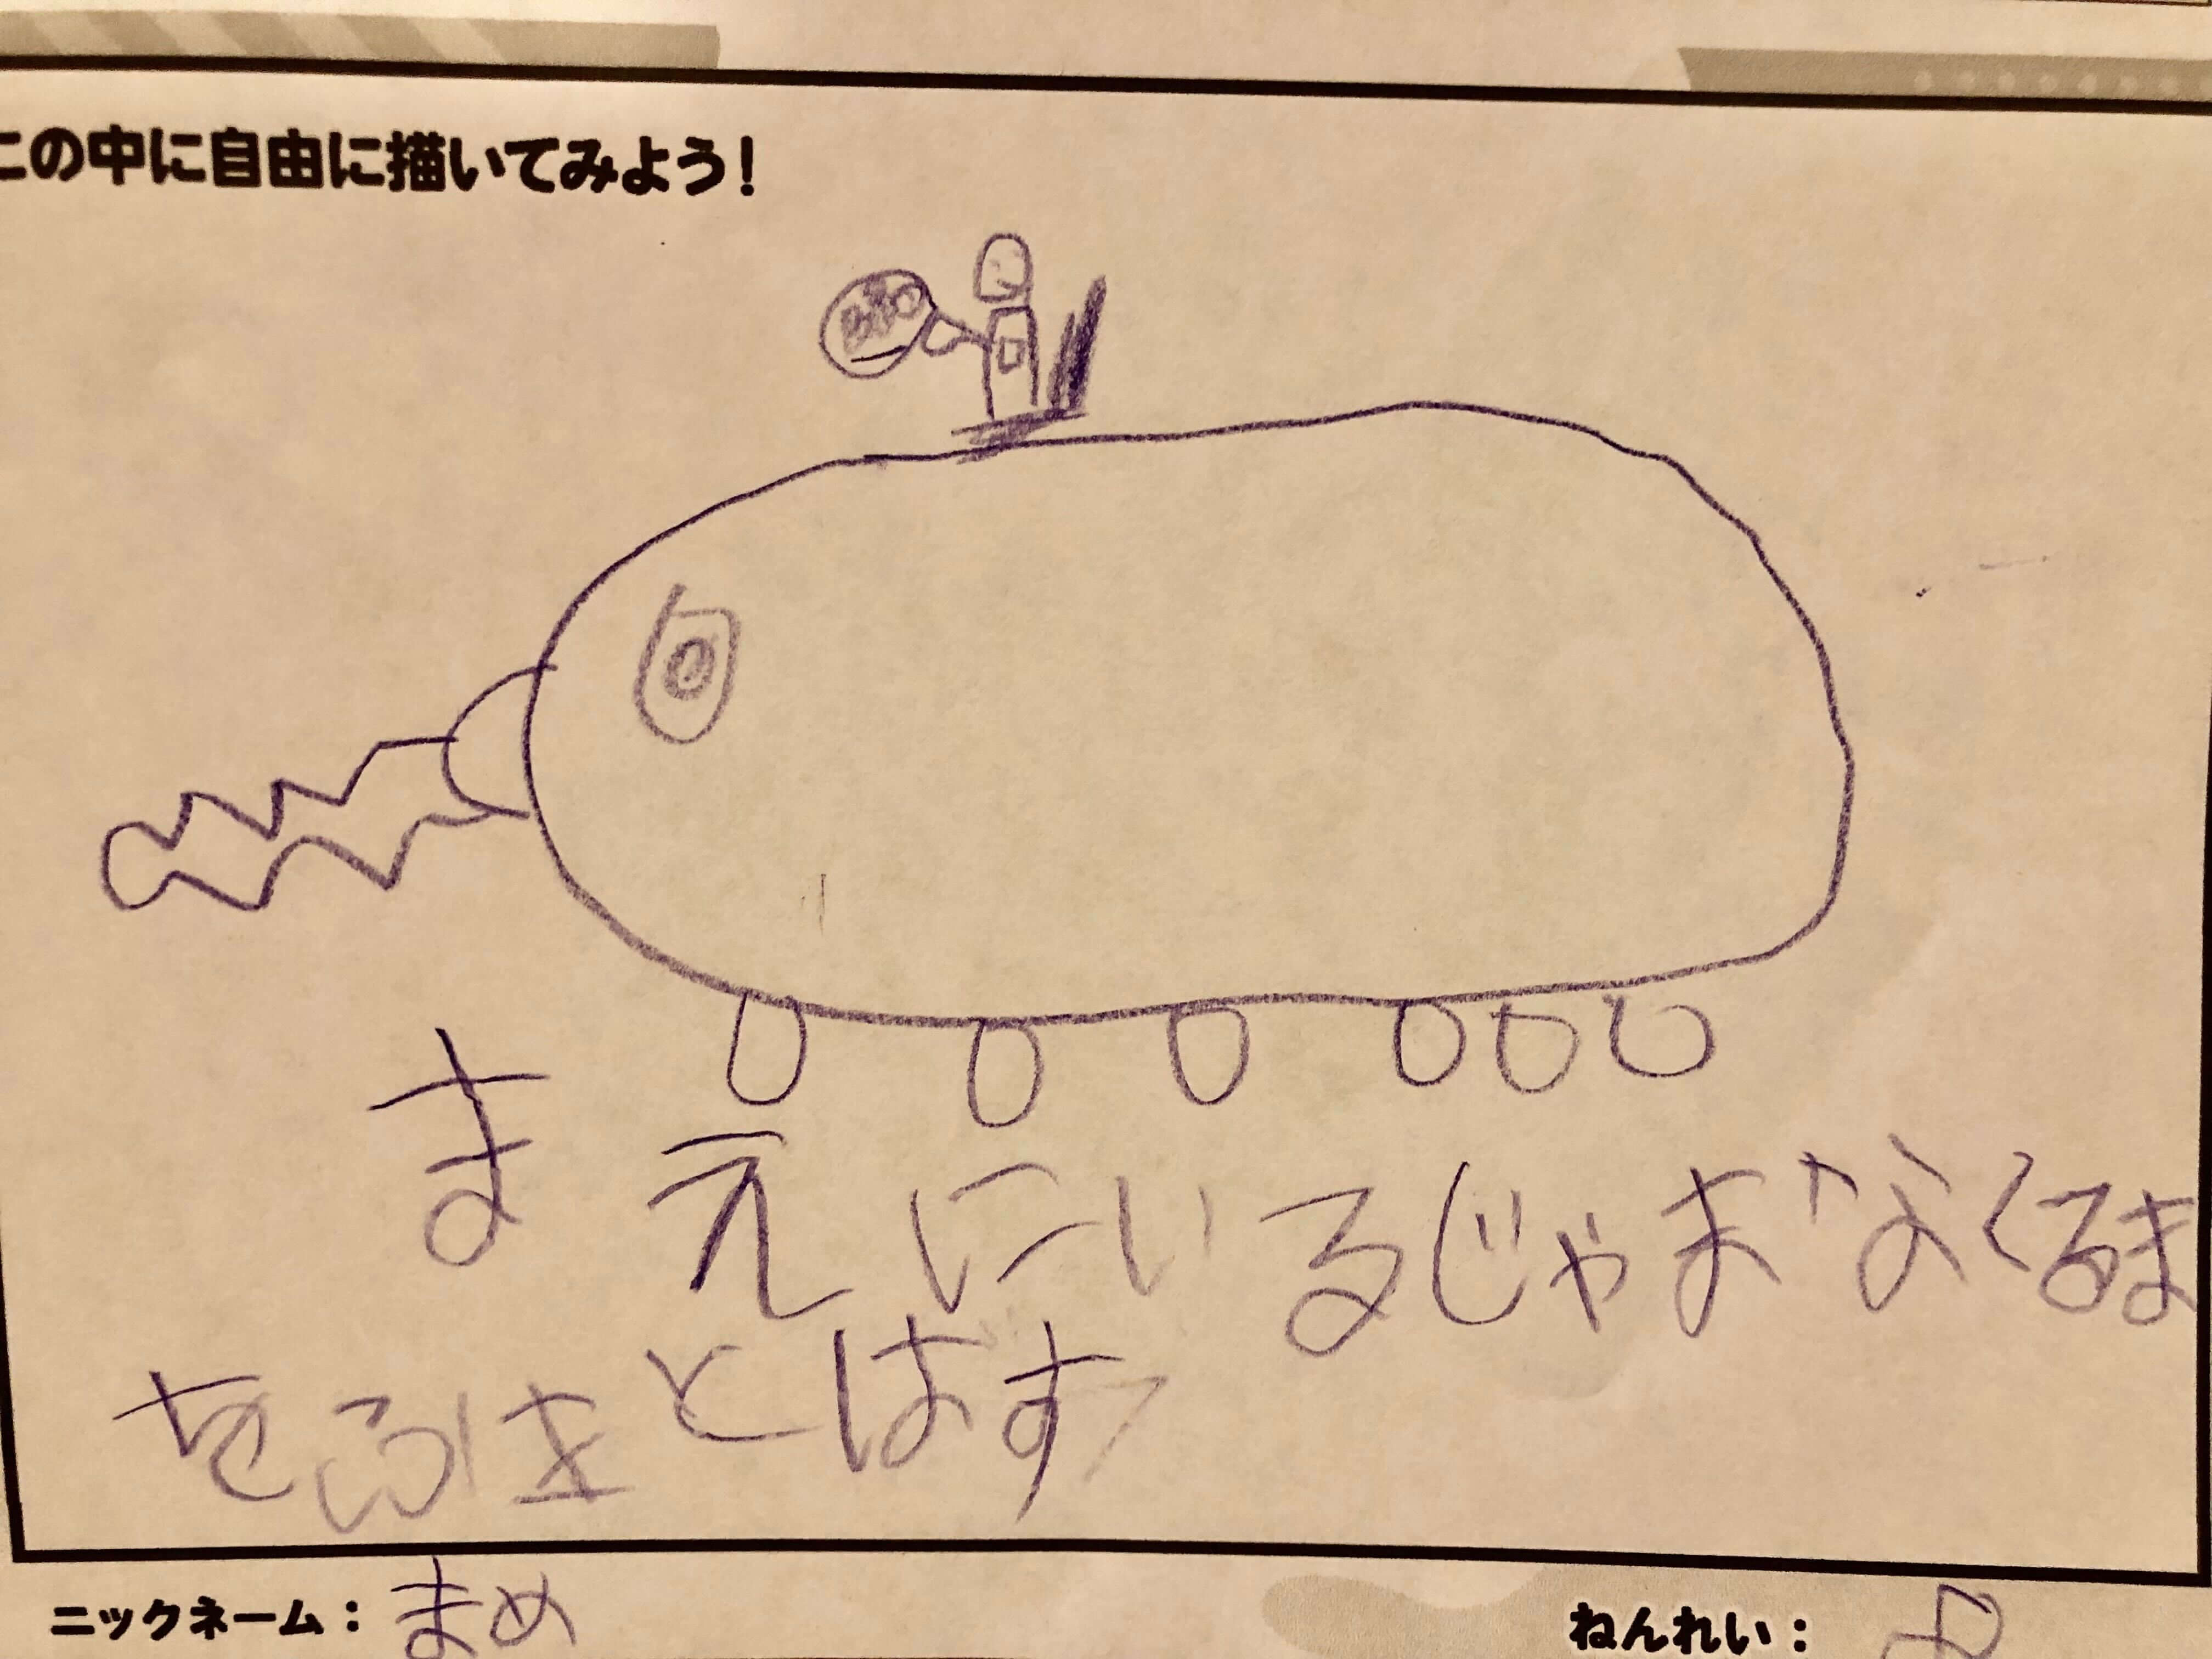 この中に自由に描いてみよう!
まえにいるじゃまなくるま
をふきとばす
ニックネーム: まめ
ねんれい: 8